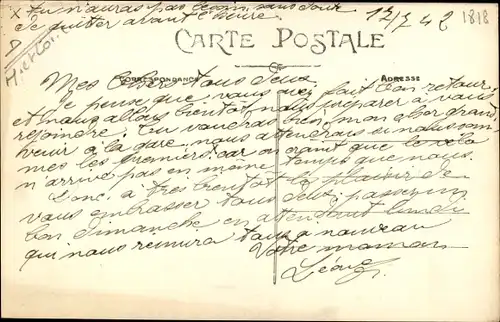 x Tu n'auras pas besoin sans doute
de quitter avant l'heure.
12/7 42
1818
CARTE POSTALE
CORRESPONDANCE
ADRESSE
Mes chers tous deux
Je pense que vous avez fait bon retour
et nous allons bientôt nous préparer à vous
rejoindre. Tu voudras bien, mon cher grand
venir à la gare nous attendrons si nous sommes
les premiers car on craint que le vélo
n'arrive pas en même temps que nous.
Donc à très bientôt le plaisir de
vous embrasser tous deux, passez un
bon dimanche en attendant lundi
qui nous réunira tous à nouveau
Votre maman